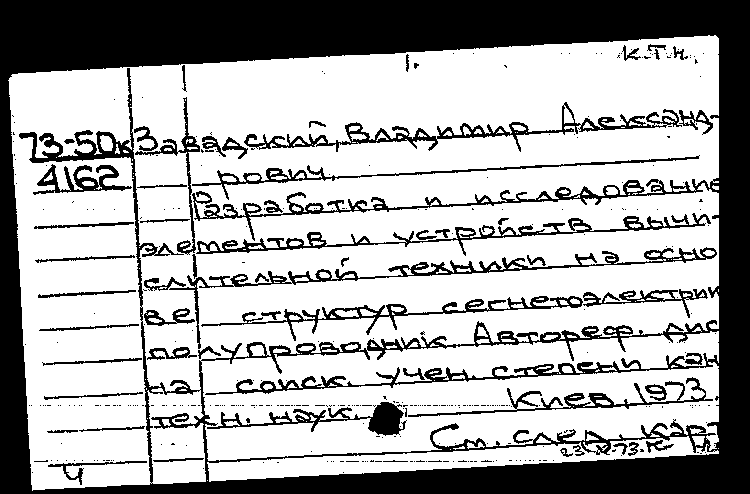 к.т.н.
73-50к Завадский, Владимир Александ-
4162 рович.
Разработка и исследование
элементов и устройств вычи-
слительной техники на осно
ве структур сегнетоэлектрик
полупроводник. Автореф. дис
на соиск. учен. степени кан
техн. наук. Киев, 1973.
См. след. карт
Ч